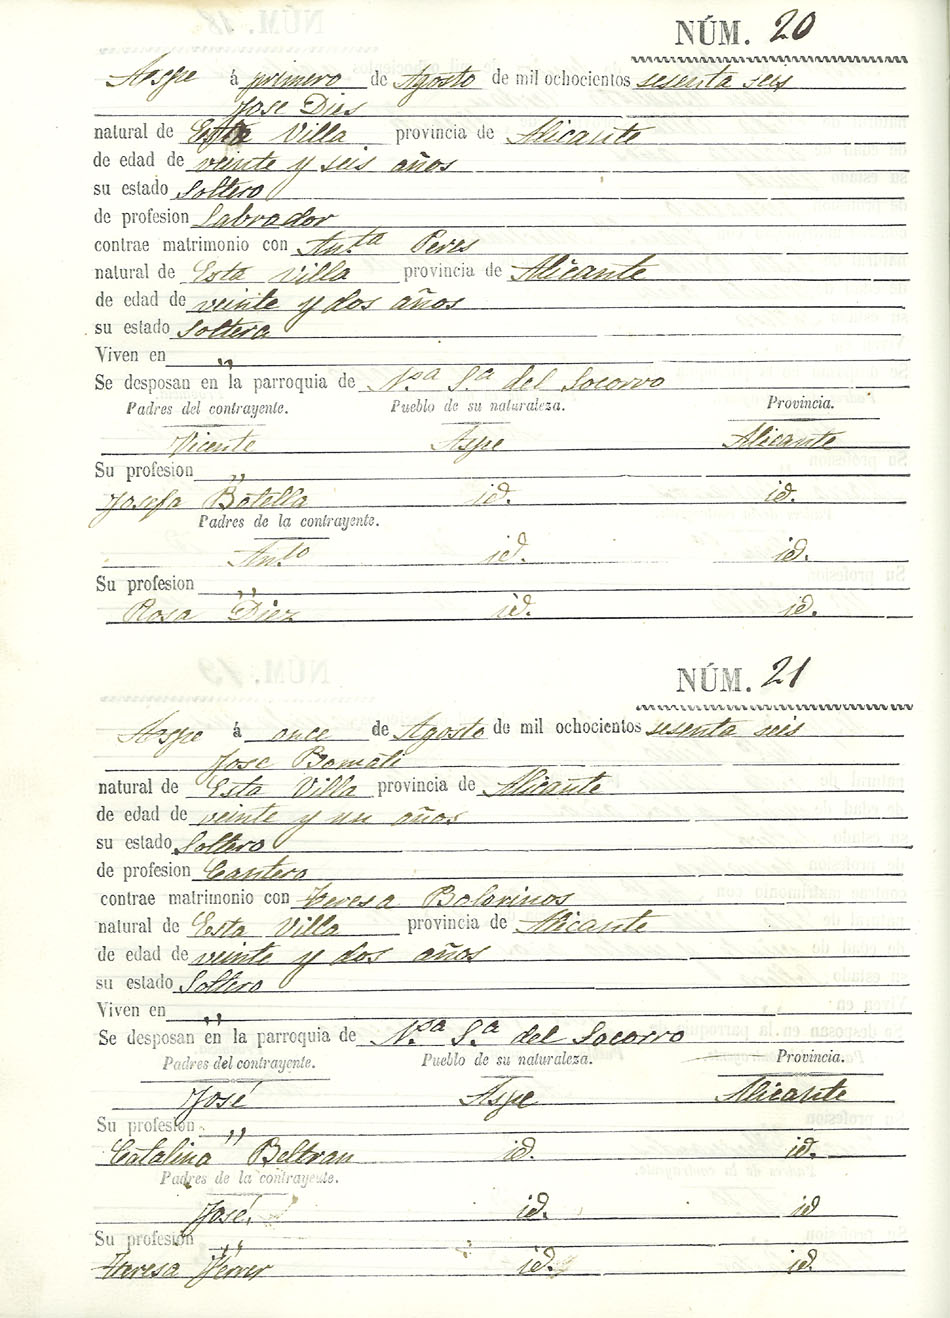 NÚM. 20
Aspe á primero de Agosto de mil ochocientos sesenta seis
Jose Dies
natural de Esta Villa provincia de Alicante
de edad de veinte y seis años
su estado Soltero
de profesion Labrador
contrae matrimonio con An.ta Peres
natural de Esta Villa provincia de Alicante
de edad de veinte y dos años
su estado Soltera
Viven en "
Se desposan en la parroquia de N.sa S.a del Socorro
Padres del contrayente. Pueblo de su naturaleza. Provincia.
Vicente Aspe Alicante
Su profesion "
Josefa Botella id. id.
Padres de la contrayente.
An.to id. id.
Su profesion "
Rosa Diez id. id.
NÚM. 21
Aspe á once de Agosto de mil ochocientos sesenta seis
Jose Bomati
natural de Esta Villa provincia de Alicante
de edad de veinte y un años
su estado Soltero
de profesion Cantero
contrae matrimonio con Teresa Bolorinos
natural de Esta Villa provincia de Alicante
de edad de veinte y dos años
su estado Soltero
Viven en "
Se desposan en la parroquia de N.sa S.a del Socorro
Padres del contrayente. Pueblo de su naturaleza. Provincia.
José Aspe Alicante
Su profesion "
Catalina Beltran id. id.
Padres de la contrayente.
José. id. id
Su profesion "
Teresa Ferrer id. id.